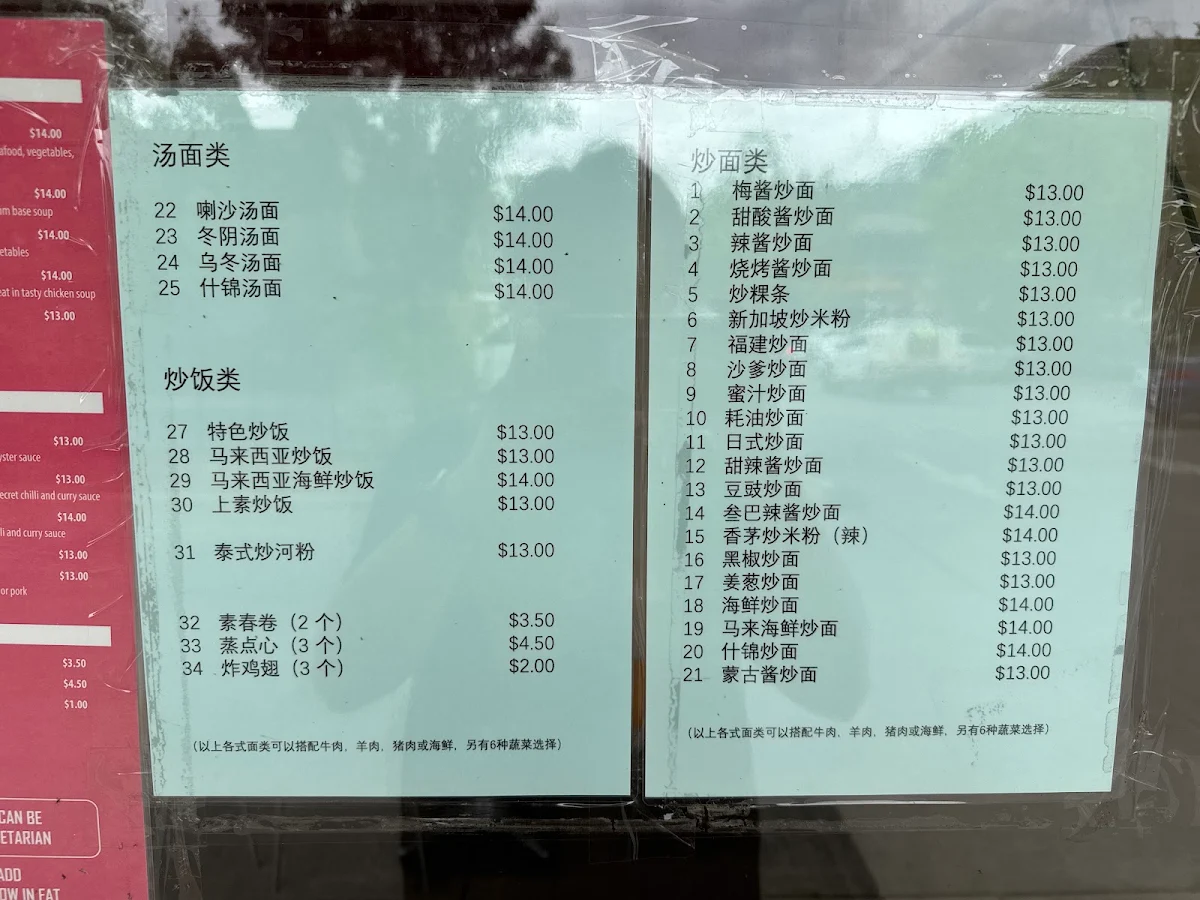 $14.00
afood, vegetables,
$14.00
um base soup
$14.00
etables
$14.00
eat in tasty chicken soup
$13.00
$13.00
yster sauce
$13.00
ecret chilli and curry sauce
$14.00
li and curry sauce
$13.00
$13.00
or pork
$3.50
$4.50
$1.00
CAN BE
ETARIAN
ADD
OW IN EAT
汤面类
22 喇沙汤面 $14.00
23 冬阴汤面 $14.00
24 乌冬汤面 $14.00
25 什锦汤面 $14.00
炒饭类
27 特色炒饭 $13.00
28 马来西亚炒饭 $13.00
29 马来西亚海鲜炒饭 $14.00
30 上素炒饭 $13.00
31 泰式炒河粉 $13.00
32 素春卷（2 个） $3.50
33 蒸点心（3 个） $4.50
34 炸鸡翅（3 个） $2.00
（以上各式面类可以搭配牛肉, 羊肉, 猪肉或海鲜, 另有6种蔬菜选择）
炒面类
1 梅酱炒面 $13.00
2 甜酸酱炒面 $13.00
3 辣酱炒面 $13.00
4 烧烤酱炒面 $13.00
5 炒粿条 $13.00
6 新加坡炒米粉 $13.00
7 福建炒面 $13.00
8 沙爹炒面 $13.00
9 蜜汁炒面 $13.00
10 耗油炒面 $13.00
11 日式炒面 $13.00
12 甜辣酱炒面 $13.00
13 豆豉炒面 $13.00
14 叁巴辣酱炒面 $14.00
15 香茅炒米粉（辣） $14.00
16 黑椒炒面 $13.00
17 姜葱炒面 $13.00
18 海鲜炒面 $14.00
19 马来海鲜炒面 $14.00
20 什锦炒面 $14.00
21 蒙古酱炒面 $13.00
（以上各式面类可以搭配牛肉, 羊肉, 猪肉或海鲜, 另有6种蔬菜选择）